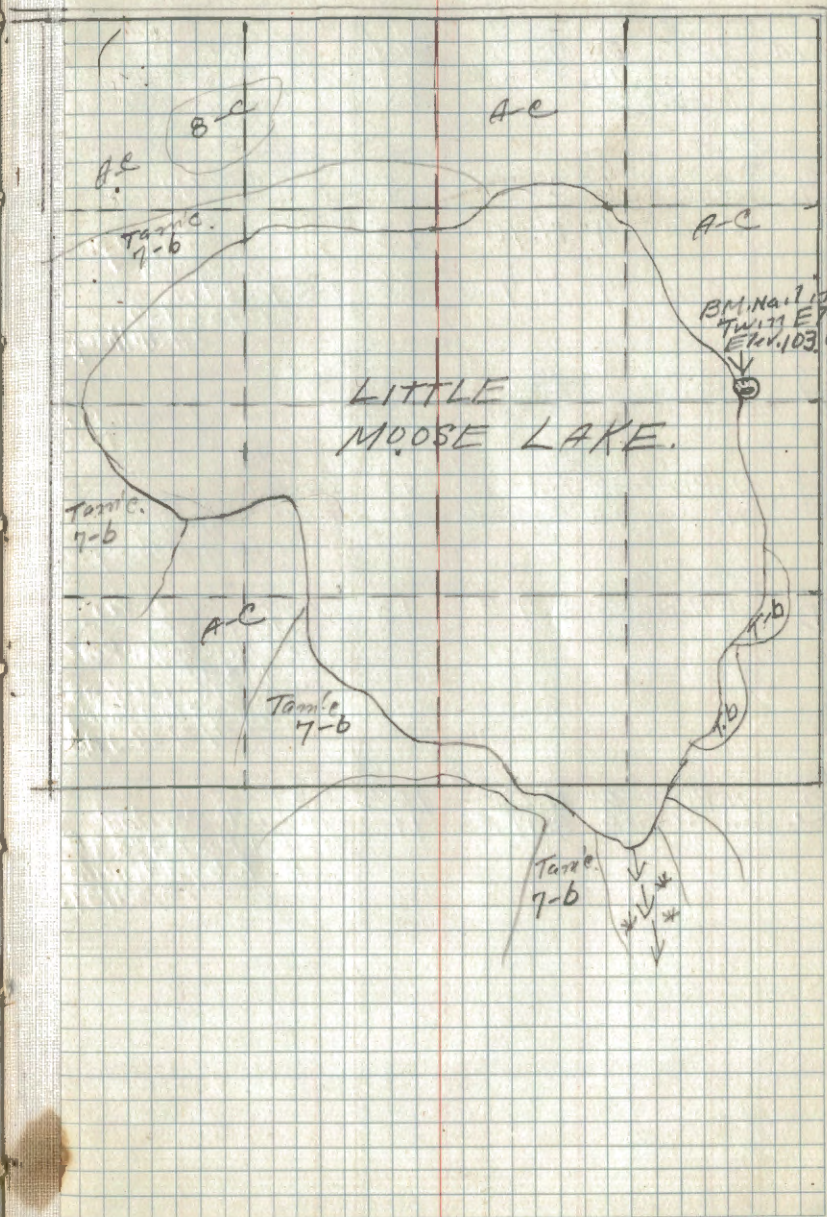 B-C
A-C
A-C
Tam'c.
7-b
A-C
BM. Nail in
Twin
Elev. 103.
LITTLE
MOOSE LAKE.
Tam'c.
7-b
A-C
T-b
Tam'c
7-b
T.b
Tam'c.
7-b